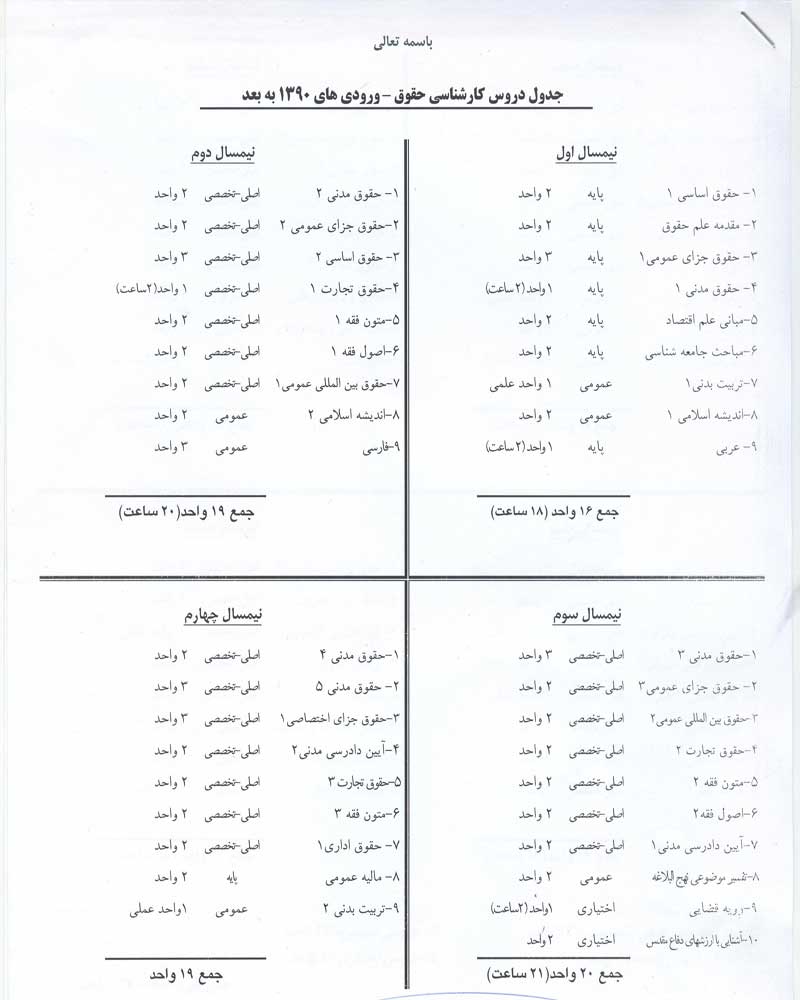 باسمه تعالی
جدول دروس کارشناسی حقوق – ورودی های ۱۳۹۰ به بعد
نیمسال اول
۱- حقوق اساسی ۱ پایه ۲ واحد
۲- مقدمه علم حقوق پایه ۲ واحد
۳- حقوق جزای عمومی۱ پایه ۳ واحد
۴- حقوق مدنی ۱ پایه ۱واحد(۲ساعت)
۵-مبانی علم اقتصاد پایه ۲ واحد
۶-مباحث جامعه شناسی پایه ۲ واحد
۷-تربیت بدنی۱ عمومی ۱ واحد علمی
۸-اندیشه اسلامی ۱ عمومی ۲ واحد
۹- عربی پایه ۱واحد(۲ساعت)
جمع ۱۶ واحد (۱۸ ساعت)
نیمسال دوم
۱- حقوق مدنی ۲ اصلی-تخصصی ۲ واحد
۲-حقوق جزای عمومی ۲ اصلی-تخصصی ۲ واحد
۳- حقوق اساسی ۲ اصلی-تخصصی ۳ واحد
۴-حقوق تجارت ۱ اصلی-تخصصی ۱ واحد(۲ساعت)
۵-متون فقه ۱ اصلی-تخصصی ۲ واحد
۶-اصول فقه ۱ اصلی-تخصصی ۲ واحد
۷-حقوق بین المللی عمومی۱ اصلی-تخصصی ۲ واحد
۸-اندیشه اسلامی ۲ عمومی ۲ واحد
۹-فارسی عمومی ۳ واحد
جمع ۱۹ واحد(۲۰ ساعت)
نیمسال سوم
۱-حقوق مدنی ۳ اصلی-تخصصی ۳ واحد
۲- حقوق جزای عمومی۳ اصلی-تخصصی ۲ واحد
۳-حقوق بین المللی عمومی۲ اصلی-تخصصی ۲ واحد
۴-حقوق تجارت ۲ اصلی-تخصصی ۲ واحد
۵-متون فقه ۲ اصلی-تخصصی ۲ واحد
۶-اصول فقه۲ اصلی-تخصصی ۲ واحد
۷-آیین دادرسی مدنی۱ اصلی-تخصصی ۲ واحد
۸-تفسیر موضوعی نهج البلاغه عمومی ۲ واحد
۹-رویه قضایی اختیاری ۱واحد(۲ساعت)
۱۰-آشنایی با ارزشهای دفاع مقدس اختیاری ۲واحد
جمع ۲۰ واحد(۲۱ ساعت)
نیمسال چهارم
۱-حقوق مدنی ۴ اصلی-تخصصی ۲ واحد
۲- حقوق مدنی ۵ اصلی-تخصصی ۳ واحد
۳-حقوق جزای اختصاصی۱ اصلی-تخصصی ۳ واحد
۴-آیین دادرسی مدنی۲ اصلی-تخصصی ۲ واحد
۵-حقوق تجارت ۳ اصلی-تخصصی ۲ واحد
۶-متون فقه ۳ اصلی-تخصصی ۲ واحد
۷- حقوق اداری۱ اصلی-تخصصی ۲ واحد
۸- مالیه عمومی پایه ۲ واحد
۹-تربیت بدنی ۲ عمومی ۱واحد عملی
جمع ۱۹ واحد